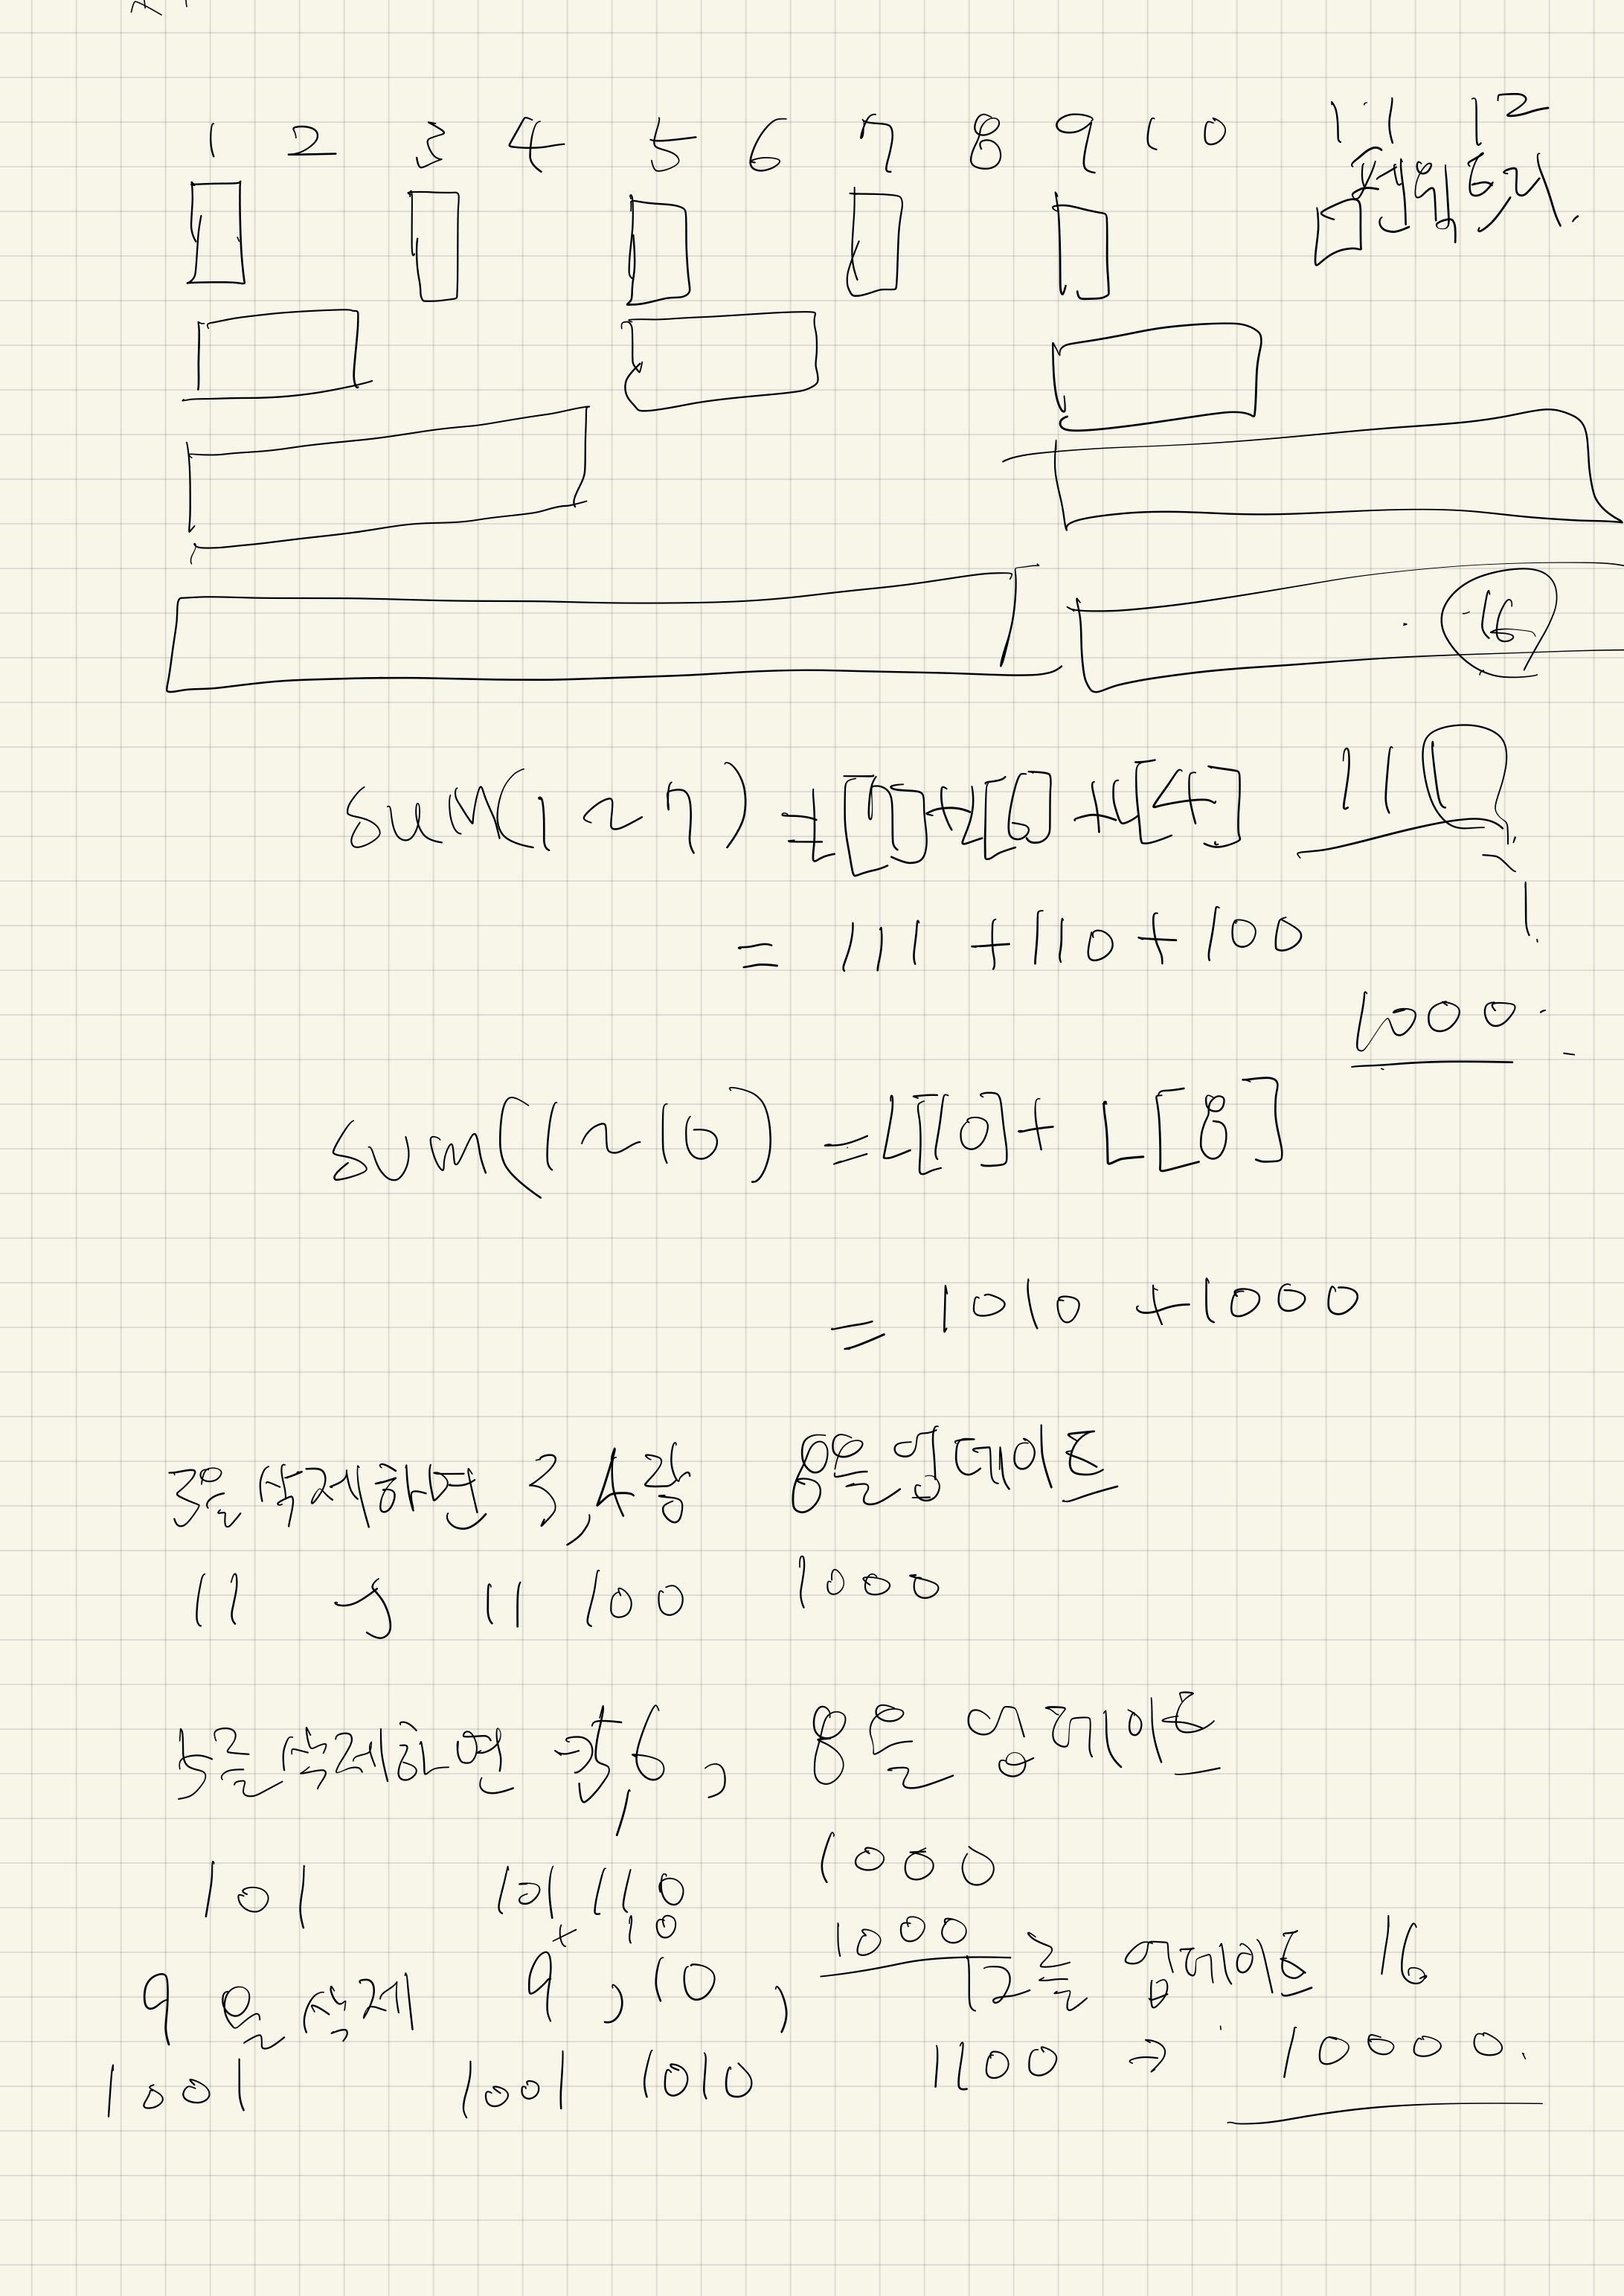 1 2 3 4 5 6 7 8 9 10 11 12
펜윅트리.
16
sum(1~7) = L[7]+L[6]+L[4] 111
= 111 + 110 + 100
1000
sum(1~10) = L[10] + L[8]
= 1010 + 1000
3을 삭제하면 3,4랑 8을 업데이트
11 → 11 100 1000
5를 삭제하면 → 5,6, 8을 업데이트
101 101 110 1000
+ 10 1000
9을 삭제 9, 10, 12를 업데이트 16
1001 1001 1010 1100 → 10000.